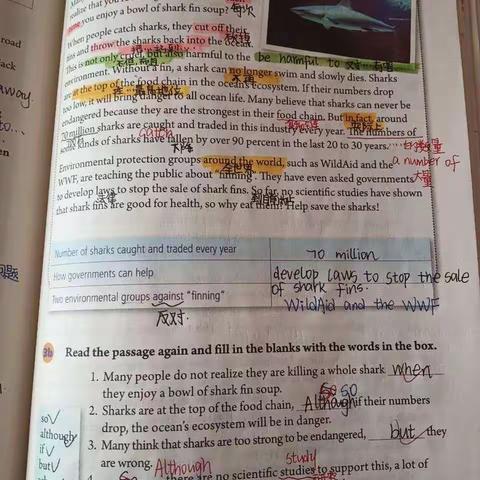 realize that you're
you enjoy a bowl of shark fin soup? 每次
When people catch sharks, they cut off their
fins and throw the sharks back into the ocean.
This is not only cruel, but also harmful to the be harmful to 对…有害
environment. Without a fin, a shark can no longer swim and slowly dies. Sharks
are at the top of the food chain in the ocean's ecosystem. If their numbers drop
too low, it will bring danger to all ocean life. Many believe that sharks can never be
endangered because they are the strongest in their food chain. But in fact, around
70 million sharks are caught and traded in this industry every year. The numbers of
catch
some kinds of sharks have fallen by over 90 percent in the last 20 to 30 years.
下降
Environmental protection groups around the world, such as WildAid and the a number of
全世界
WWF, are teaching the public about "finning". They have even asked governments 大量
to develop laws to stop the sale of shark fins. So far, no scientific studies have shown
法律
that shark fins are good for health, so why eat them? Help save the sharks!
Number of sharks caught and traded every year 70 million
How governments can help develop laws to stop the sale
of shark fins.
Two environmental groups against "finning" WildAid and the WWF
反对.
3b Read the passage again and fill in the blanks with the words in the box.
1. Many people do not realize they are killing a whole shark when
they enjoy a bowl of shark fin soup. so
2. Sharks are at the top of the food chain, Although if their numbers
drop, the ocean's ecosystem will be in danger.
3. Many think that sharks are too strong to be endangered, but they
are wrong. Although study
there are no scientific studies to support this, a lot of
so
although
if
but
road
ack
away.
to...
en
问题